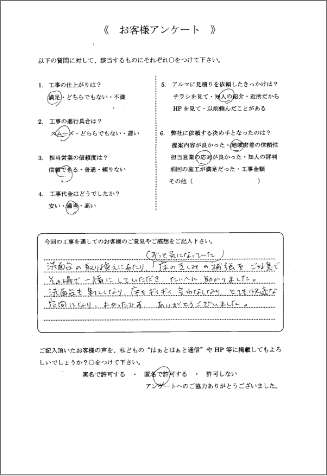 《 お客様アンケート 》
以下の質問に対して、該当するものにそれぞれ○をつけて下さい。
1. 工事の仕上がりは?
満足・どちらでもない・不満
2. 工事の進行具合は?
スムーズ・どちらでもない・遅い
3. 担当営業の信頼度は?
信頼できる・普通・頼りない
4. 工事代金はどうでしたか?
安い・適正・高い
5. アルマに見積りを依頼したきっかけは?
チラシを見て・知人の紹介・近所だから
HPを見て・以前頼んだことがある
6. 弊社に依頼する決め手となったのは?
提案内容が良かった・地域密着の信頼性
担当営業の応対が良かった・知人の評判
前回の施工が満足だった・工事金額
その他( )
今回の工事を通してのお客様のご意見やご感想をご記入下さい。
(ずっと気になっていた)
洗面台の取り替えにあたり、床のきしみの補強を
その場で一緒にしていただき たいへん助かりました。
洗面台も新しくなり、床も
なり、よかったです。ありがとうございました。
ご記入頂いたお客様の声を、私どもの"はぁとはぁと通信"やHP等に掲載してもよろ
しいでしょうか?○をつけて下さい。
実名で許可する ・ 匿名で許可する ・ 許可しない
アンケートへのご協力ありがとうございました。